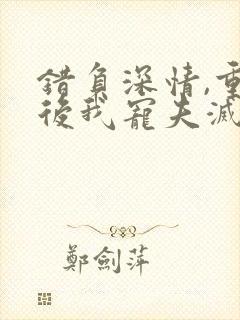 錯負深情,重
後我寵夫滅
鄭劍萍